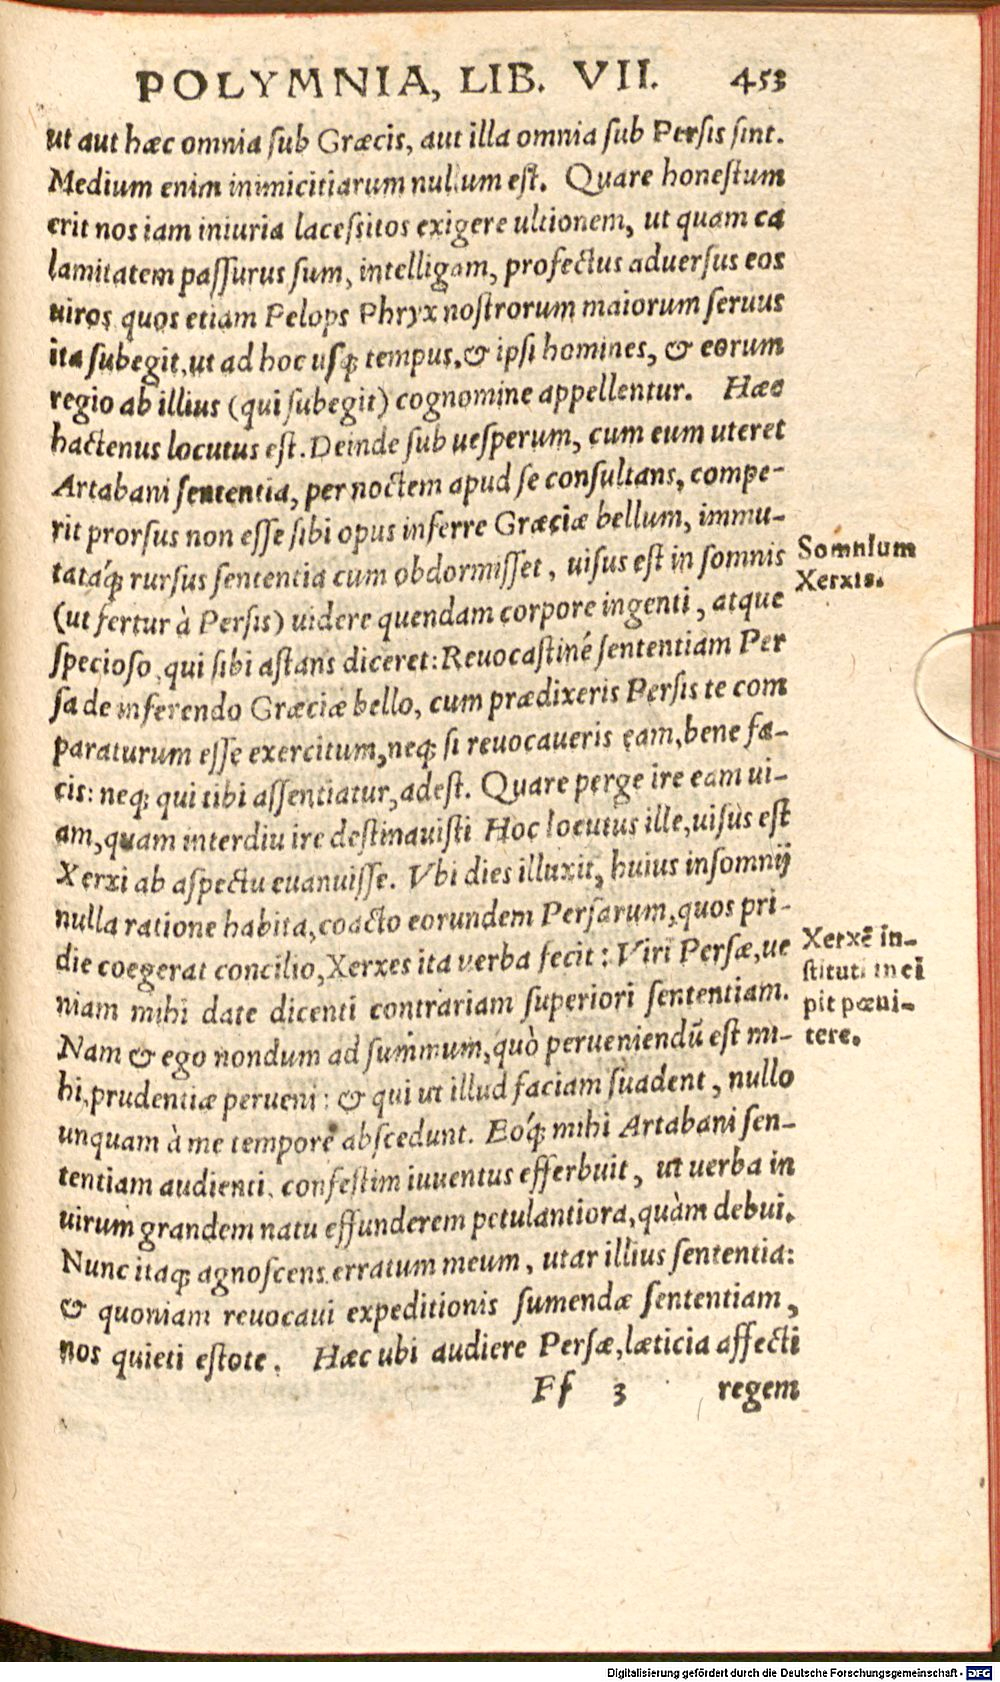 POLYMNIA, LIB. VII. 453
ut aut hæc omnia ſub Græcis, aut illa omnia ſub Perſis ſint.
Medium enim inimicitiarum nullum eſt. Quare honeſtum
erit nos iam iniuria laceſsitos exigere ultionem, ut quam ca
lamitatem paſſurus ſum, intelligam, profectus aduerſus eos
uiros quos etiam Pelops Phryx noſtrorum maiorum ſeruus
ita ſubegit, ut ad hoc uſq; tempus, & ipſi homines, & eorum
regio ab illius (qui ſubegit) cognomine appellentur. Hæc
hactenus locutus eſt. Deinde ſub ueſperum, cum eum uteret
Artabani ſententia, per noctem apud ſe conſultans, compe-
rit prorſus non eſſe ſibi opus inferre Græciæ bellum, immu-
tatáq; rurſus ſententia cum obdormiſſet, uiſus eſt in ſomnis
(ut fertur à Perſis) uidere quendam corpore ingenti, atque
ſpecioſo, qui ſibi aſtans diceret: Reuocaſtiné ſententiam Per
ſa de inferendo Græciæ bello, cum prædixeris Perſis te com
paraturum eſſe exercitum, neq; ſi reuocaueris eam, bene fa-
cis: neq; qui tibi aſſentiatur, adeſt. Quare perge ire eam ui-
am, quam interdiu ire deſtinauiſti Hoc locutus ille, uiſus eſt
Xerxi ab aſpectu euanuiſſe. Vbi dies illuxit, huius inſomnij
nulla ratione habita, coacto eorundem Perſarum, quos pri-
die coegerat concilio, Xerxes ita uerba fecit: Viri Perſæ, ue
niam mihi date dicenti contrariam ſuperiori ſententiam.
Nam & ego nondum ad ſummum, quò perueniendũ eſt mi-
hi, prudentiæ perueni: & qui ut illud faciam ſuadent, nullo
unquam à me tempore abſcedunt. Eóq; mihi Artabani ſen-
tentiam audienti, confeſtim iuuentus efferbuit, ut uerba in
uirum grandem natu effunderem petulantiora, quàm debui.
Nunc itaq; agnoſcens erratum meum, utar illius ſententia:
& quoniam reuocaui expeditionis ſumendæ ſententiam,
nos quieti eſtote. Hæc ubi audiere Perſæ, læticia affecti
Ff 3 regem
Somnium
Xerxis.
Xerxẽ in-
ſtituti inci
pit pœni-
tere.
Digitalisierung gefördert durch die Deutsche Forschungsgemeinschaft - DFG